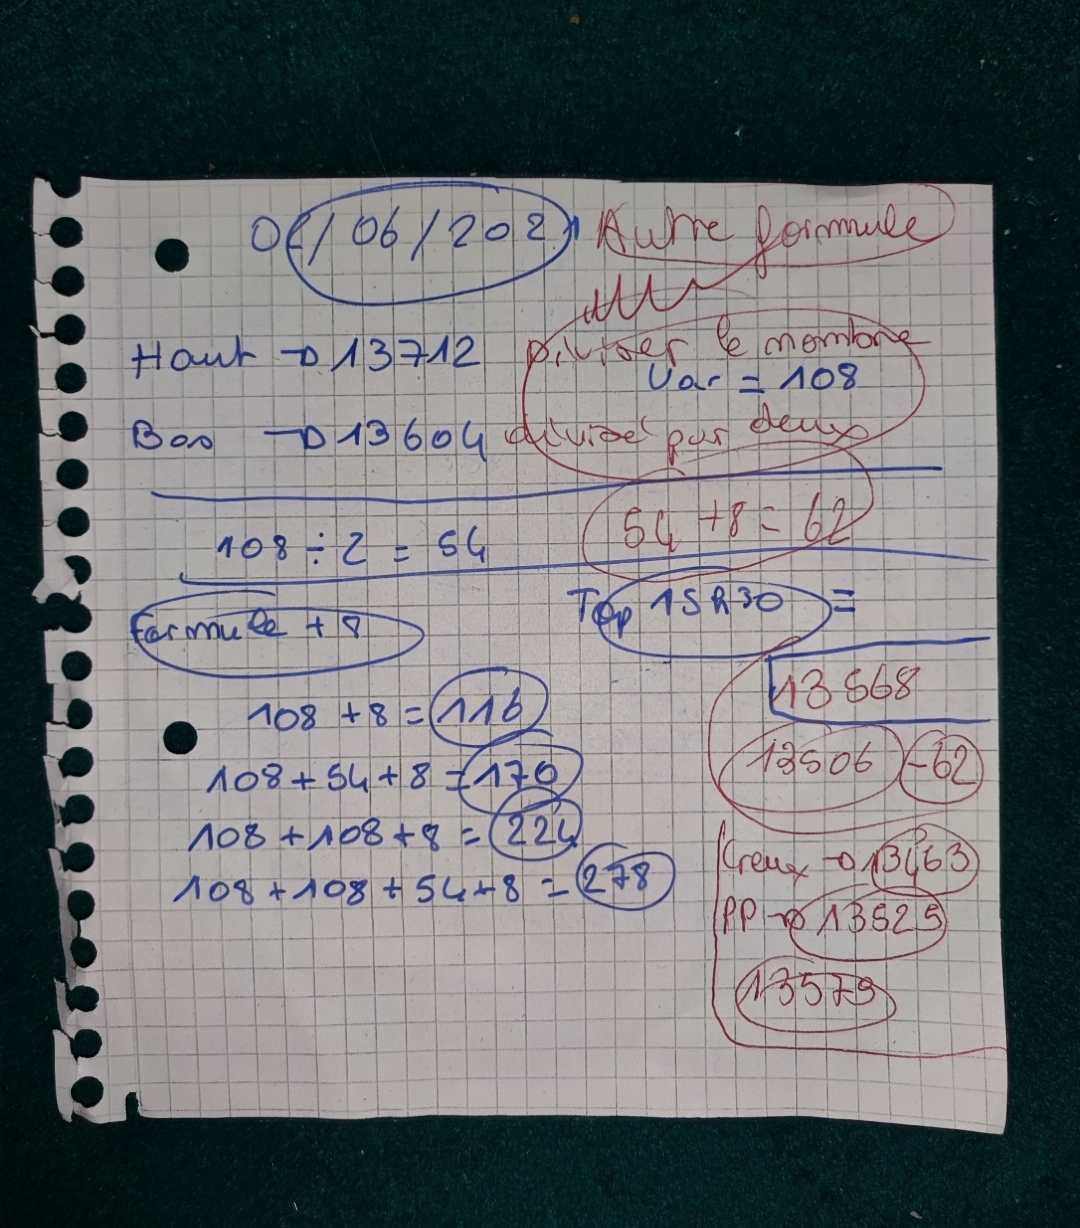 01/06/2021 Autre formule
Haut → 13712 Diviser le nombre
Var = 108
Bas → 13604 divisé par deux
54 +8 = 62
108 ÷ 2 = 54
Formule + 8 Top 15R30 =
13568
108 +8 = 116
13506 -62
108 + 54 + 8 = 170
108 + 108 + 8 = 224
Creux → 13463
108 + 108 + 54 + 8 = 278
PP → 13525
13579